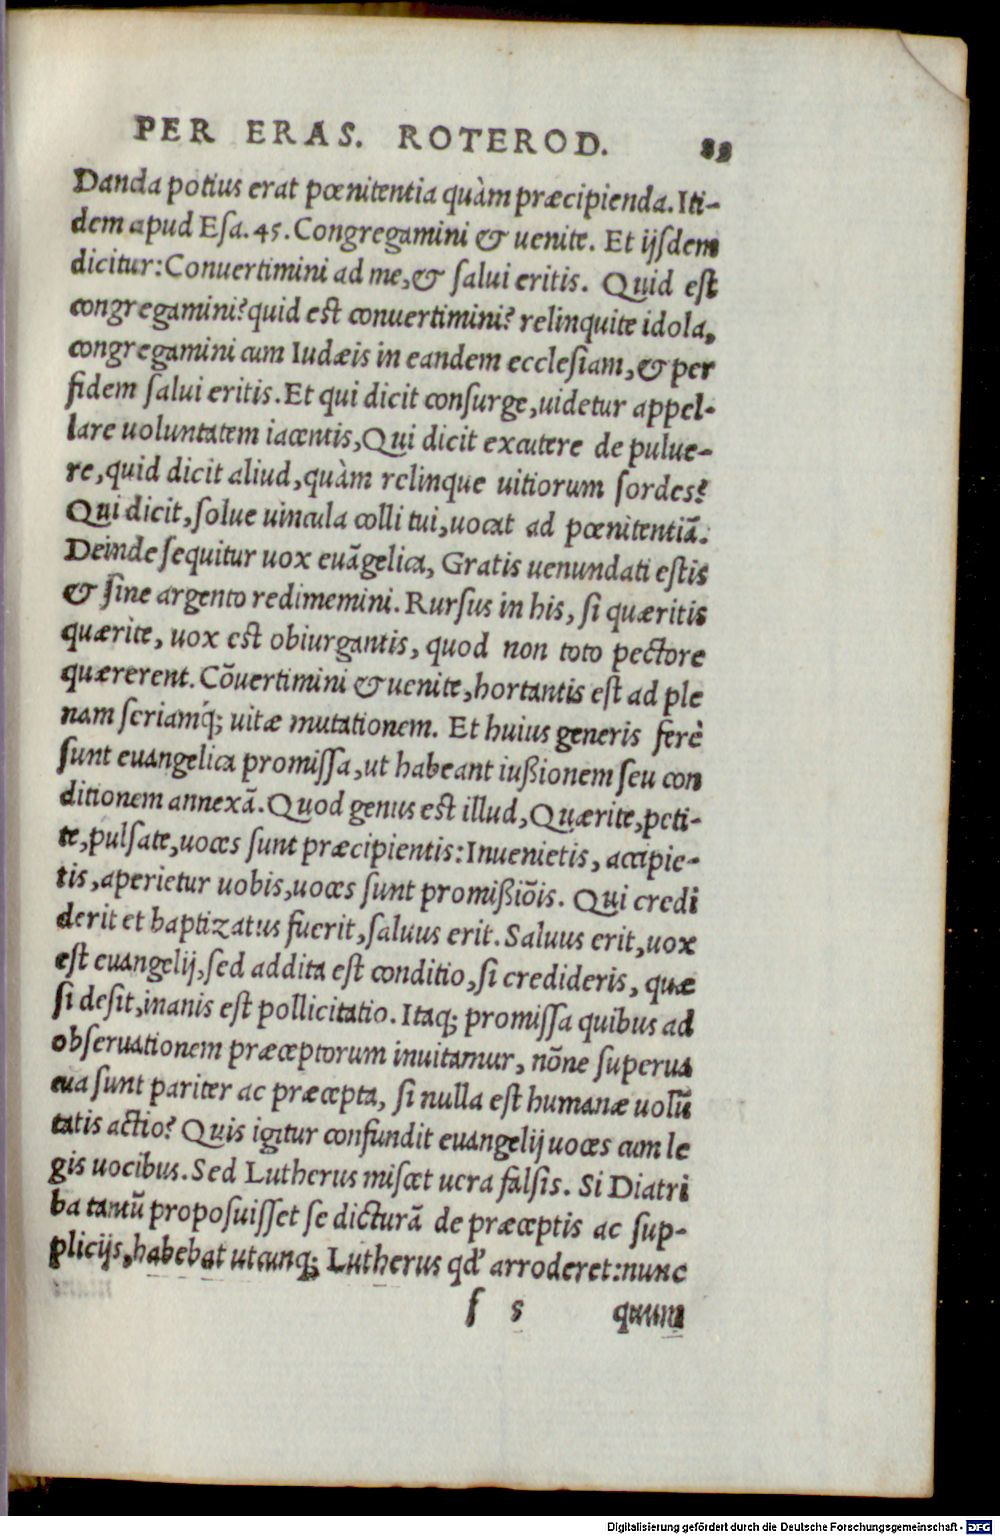 PER ERAS. ROTEROD. 89
Danda potius erat pœnitentia quàm præcipienda. Iti-
dem apud Esa. 45. Congregamini & uenite. Et ijsdem
dicitur: Conuertimini ad me, & salui eritis. Quid est
congregamini? quid est conuertimini? relinquite idola,
congregamini cum Iudæis in eandem ecclesiam, & per
fidem salui eritis. Et qui dicit consurge, uidetur appel-
lare uoluntatem iacentis, Qui dicit excutere de pulue-
re, quid dicit aliud, quàm relinque uitiorum sordes?
Qui dicit, solue uincula colli tui, uocat ad pœnitentiā.
Deinde sequitur uox euāgelica, Gratis uenundati estis
& sine argento redimemini. Rursus in his, si quæritis
quærite, uox est obiurgantis, quod non toto pectore
quærerent. Cōuertimini & uenite, hortantis est ad ple
nam seriamq́; uitæ mutationem. Et huius generis ferè
sunt euangelica promissa, ut habeant iußionem seu con
ditionem annexā. Quod genus est illud, Quærite, peti-
te, pulsate, uoces sunt præcipientis: Inuenietis, accipie-
tis, aperietur uobis, uoces sunt promißiōis. Qui credi
derit et baptizatus fuerit, saluus erit. Saluus erit, uox
est euangelij, sed addita est conditio, si credideris, quæ
si desit, inanis est pollicitatio. Itaq; promissa quibus ad
obseruationem præceptorum inuitamur, nōne superua
cua sunt pariter ac præcepta, si nulla est humanæ uolū
tatis actio? Quis igitur confundit euangelij uoces cum le
gis uocibus. Sed Lutherus miscet uera falsis. Si Diatri
ba tantū proposuisset se dicturā de præceptis ac sup-
plicijs, habebat utcunq; Lutherus qd' arroderet: nunc
f 5 quum
Digitalisierung gefördert durch die Deutsche Forschungsgemeinschaft - DFG